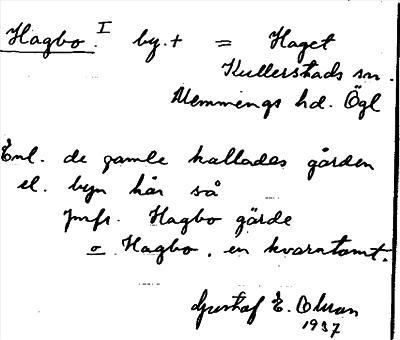 Hagbo. I by. + = Haget
Kullerstads sn.
Memmings hd. Ögl
Enl. de gamle kallades gården
el. byn här så
Jmfr. Hagbo gärde
o Hagbo, en kvarntomt.
Gustaf E. Olsson
1937